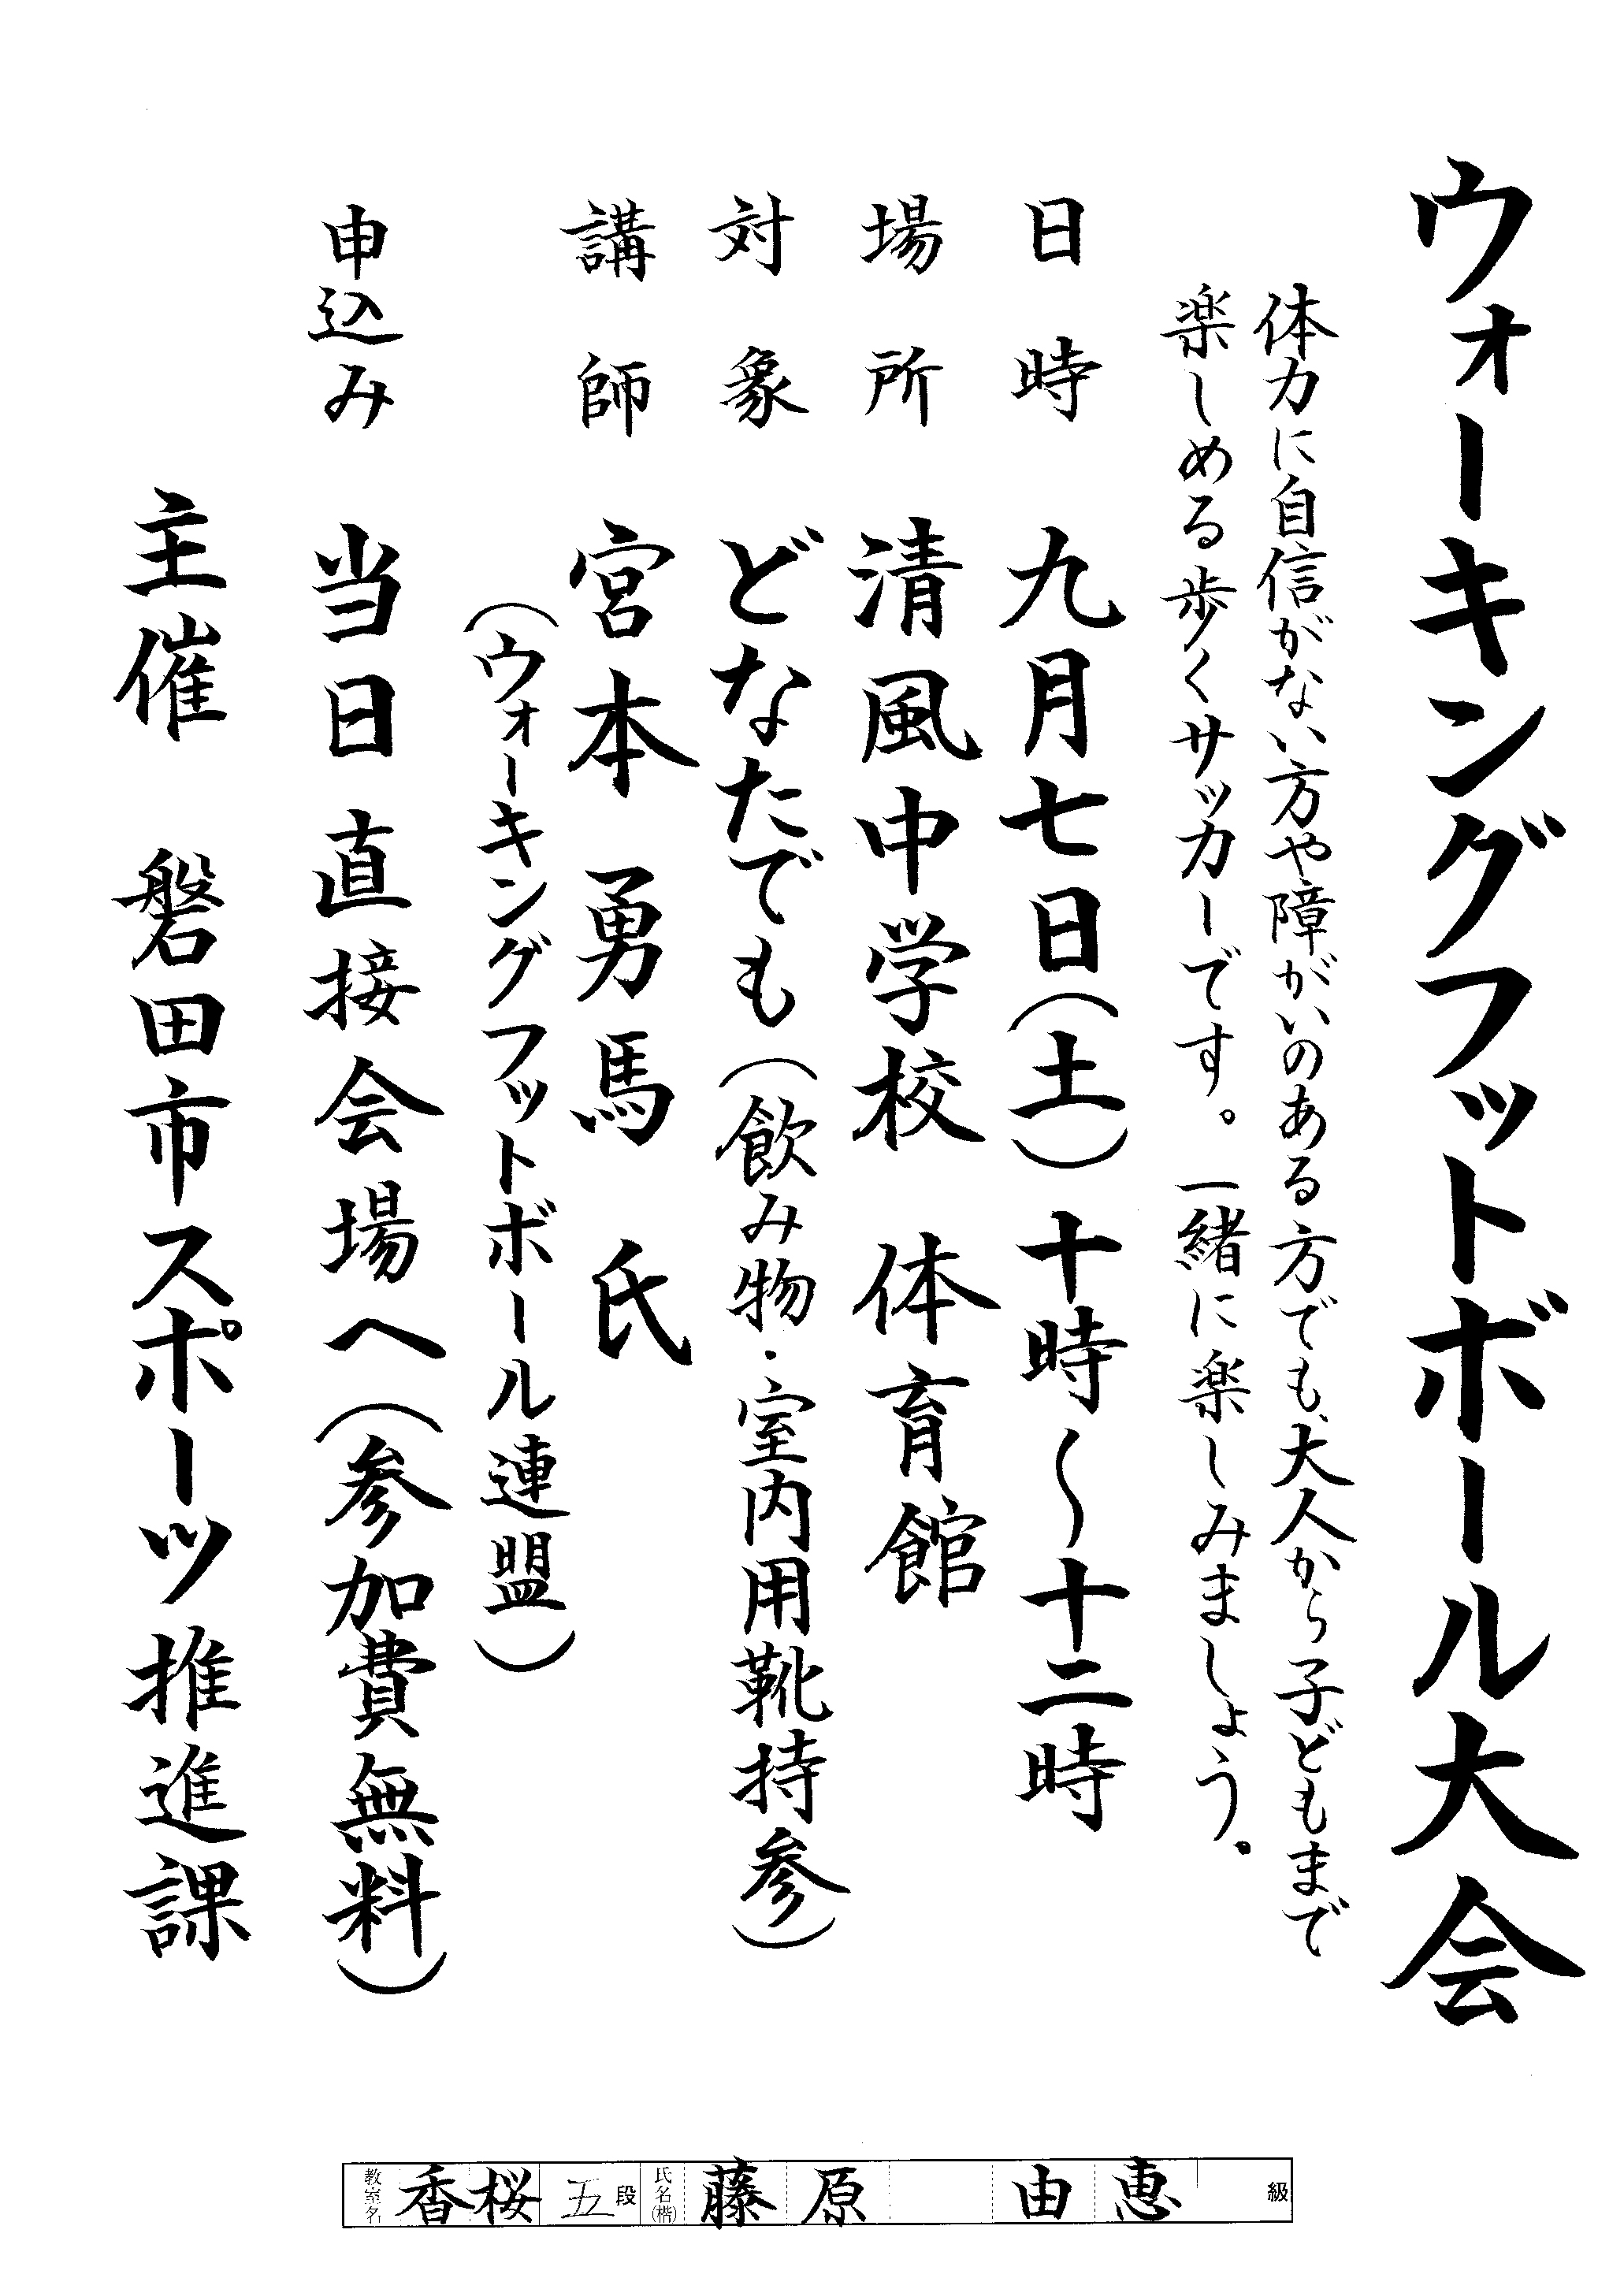 ウォーキングフットボール大会
体力に自信がない方や障がいのある方でも、大人から子どもまで
楽しめる歩くサッカーです。一緒に楽しみましょう。
日時 九月七日(土)十時〜十二時
場所 清風中学校 体育館
対象 どなたでも(飲み物・室内用靴持参)
講師 宮本 勇馬 氏
(ウォーキングフットボール連盟)
申込み 当日直接会場へ(参加費無料)
主催 磐田市スポーツ推進課
教室名 香桜 五段 氏名(楷) 藤原 由恵 級